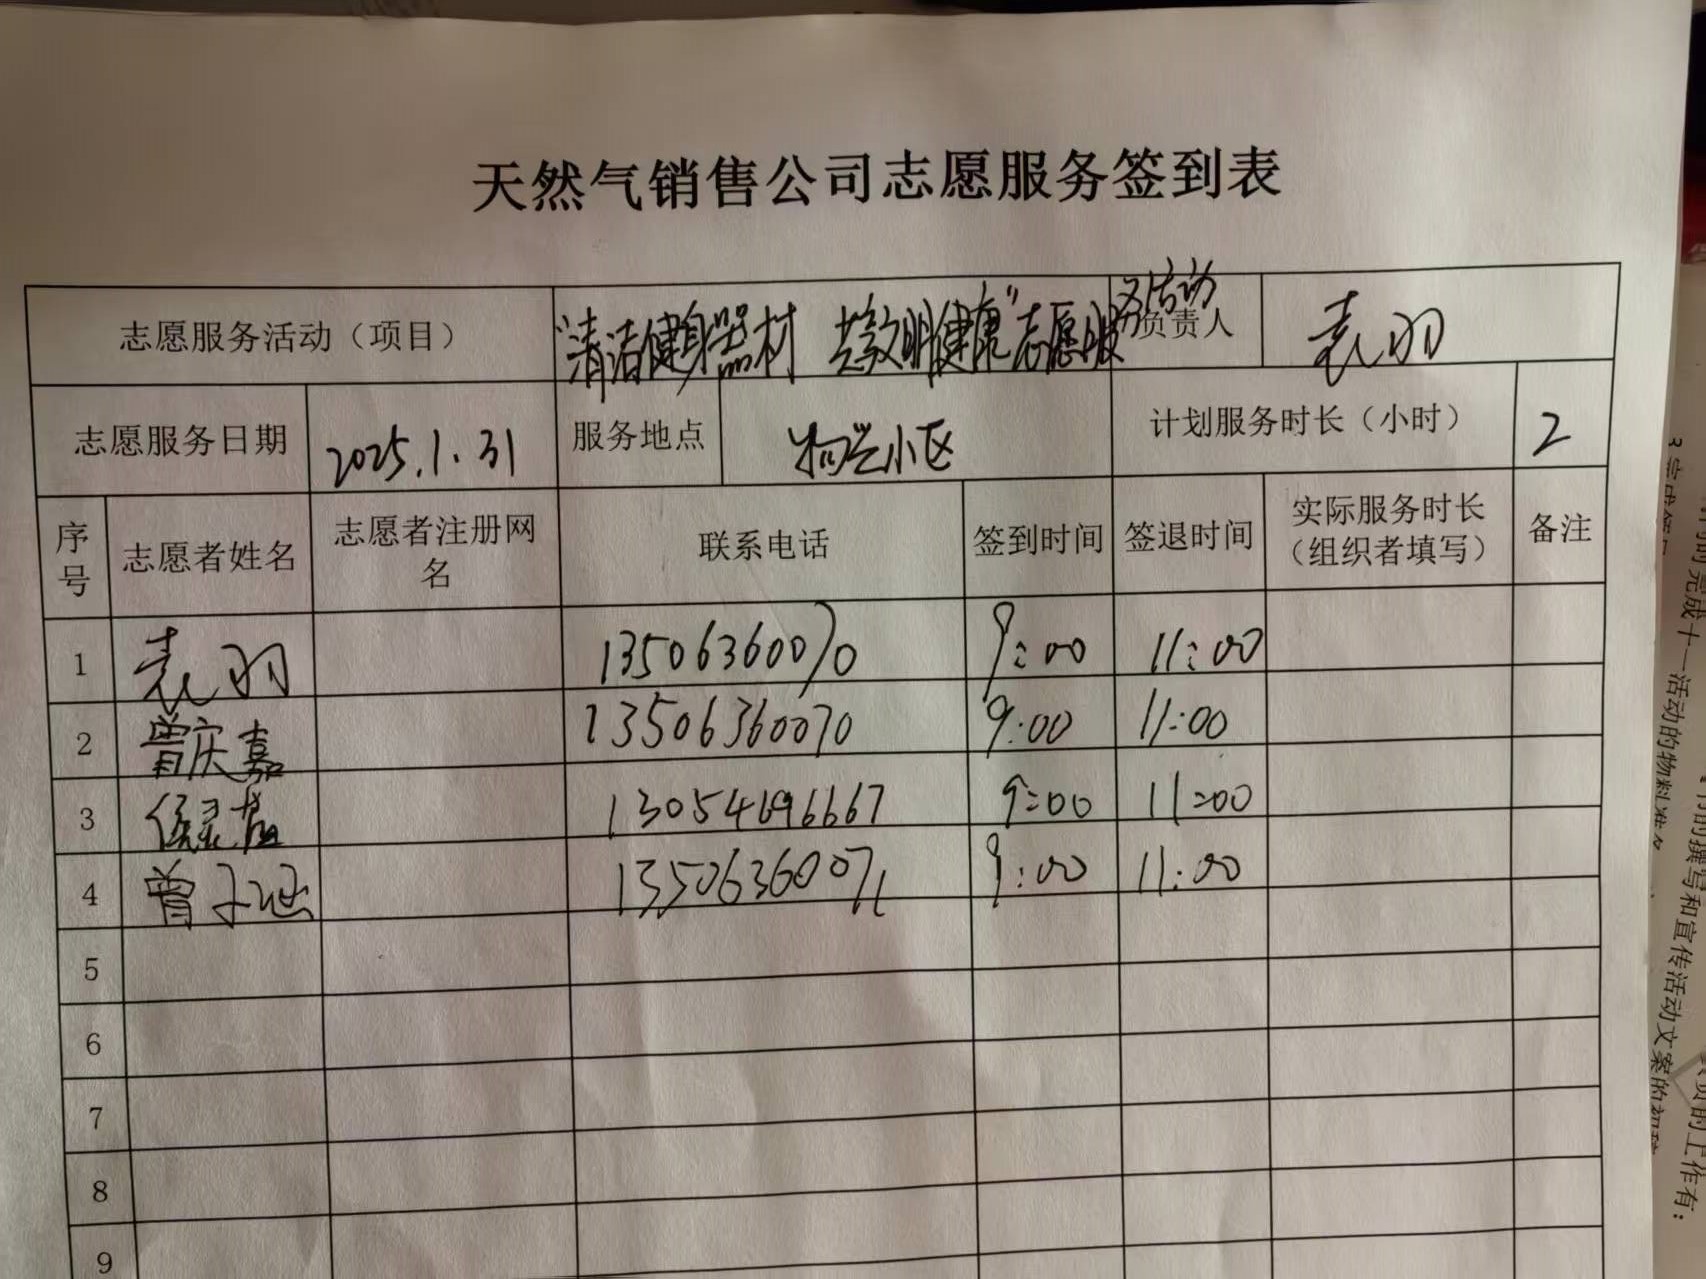 天然气销售公司志愿服务签到表
志愿服务活动（项目） “清洁健身器材 共享文明健康”志愿服务活动 负责人 袁羽
志愿服务日期 2025.1.31 服务地点 小区 计划服务时长（小时） 2
序号 志愿者姓名 志愿者注册网名 联系电话 签到时间 签退时间 实际服务时长（组织者填写） 备注
1 袁羽 13506360070 9:00 11:00
2 曾庆嘉 13506360070 9:00 11:00
3 13054696667 9:00 11:00
4 曾子涵 13506360071 9:00 11:00
5
6
7
8
9
完成十一活动的物料准备
的撰写和宣传活动文案的初稿
负责的工作有：